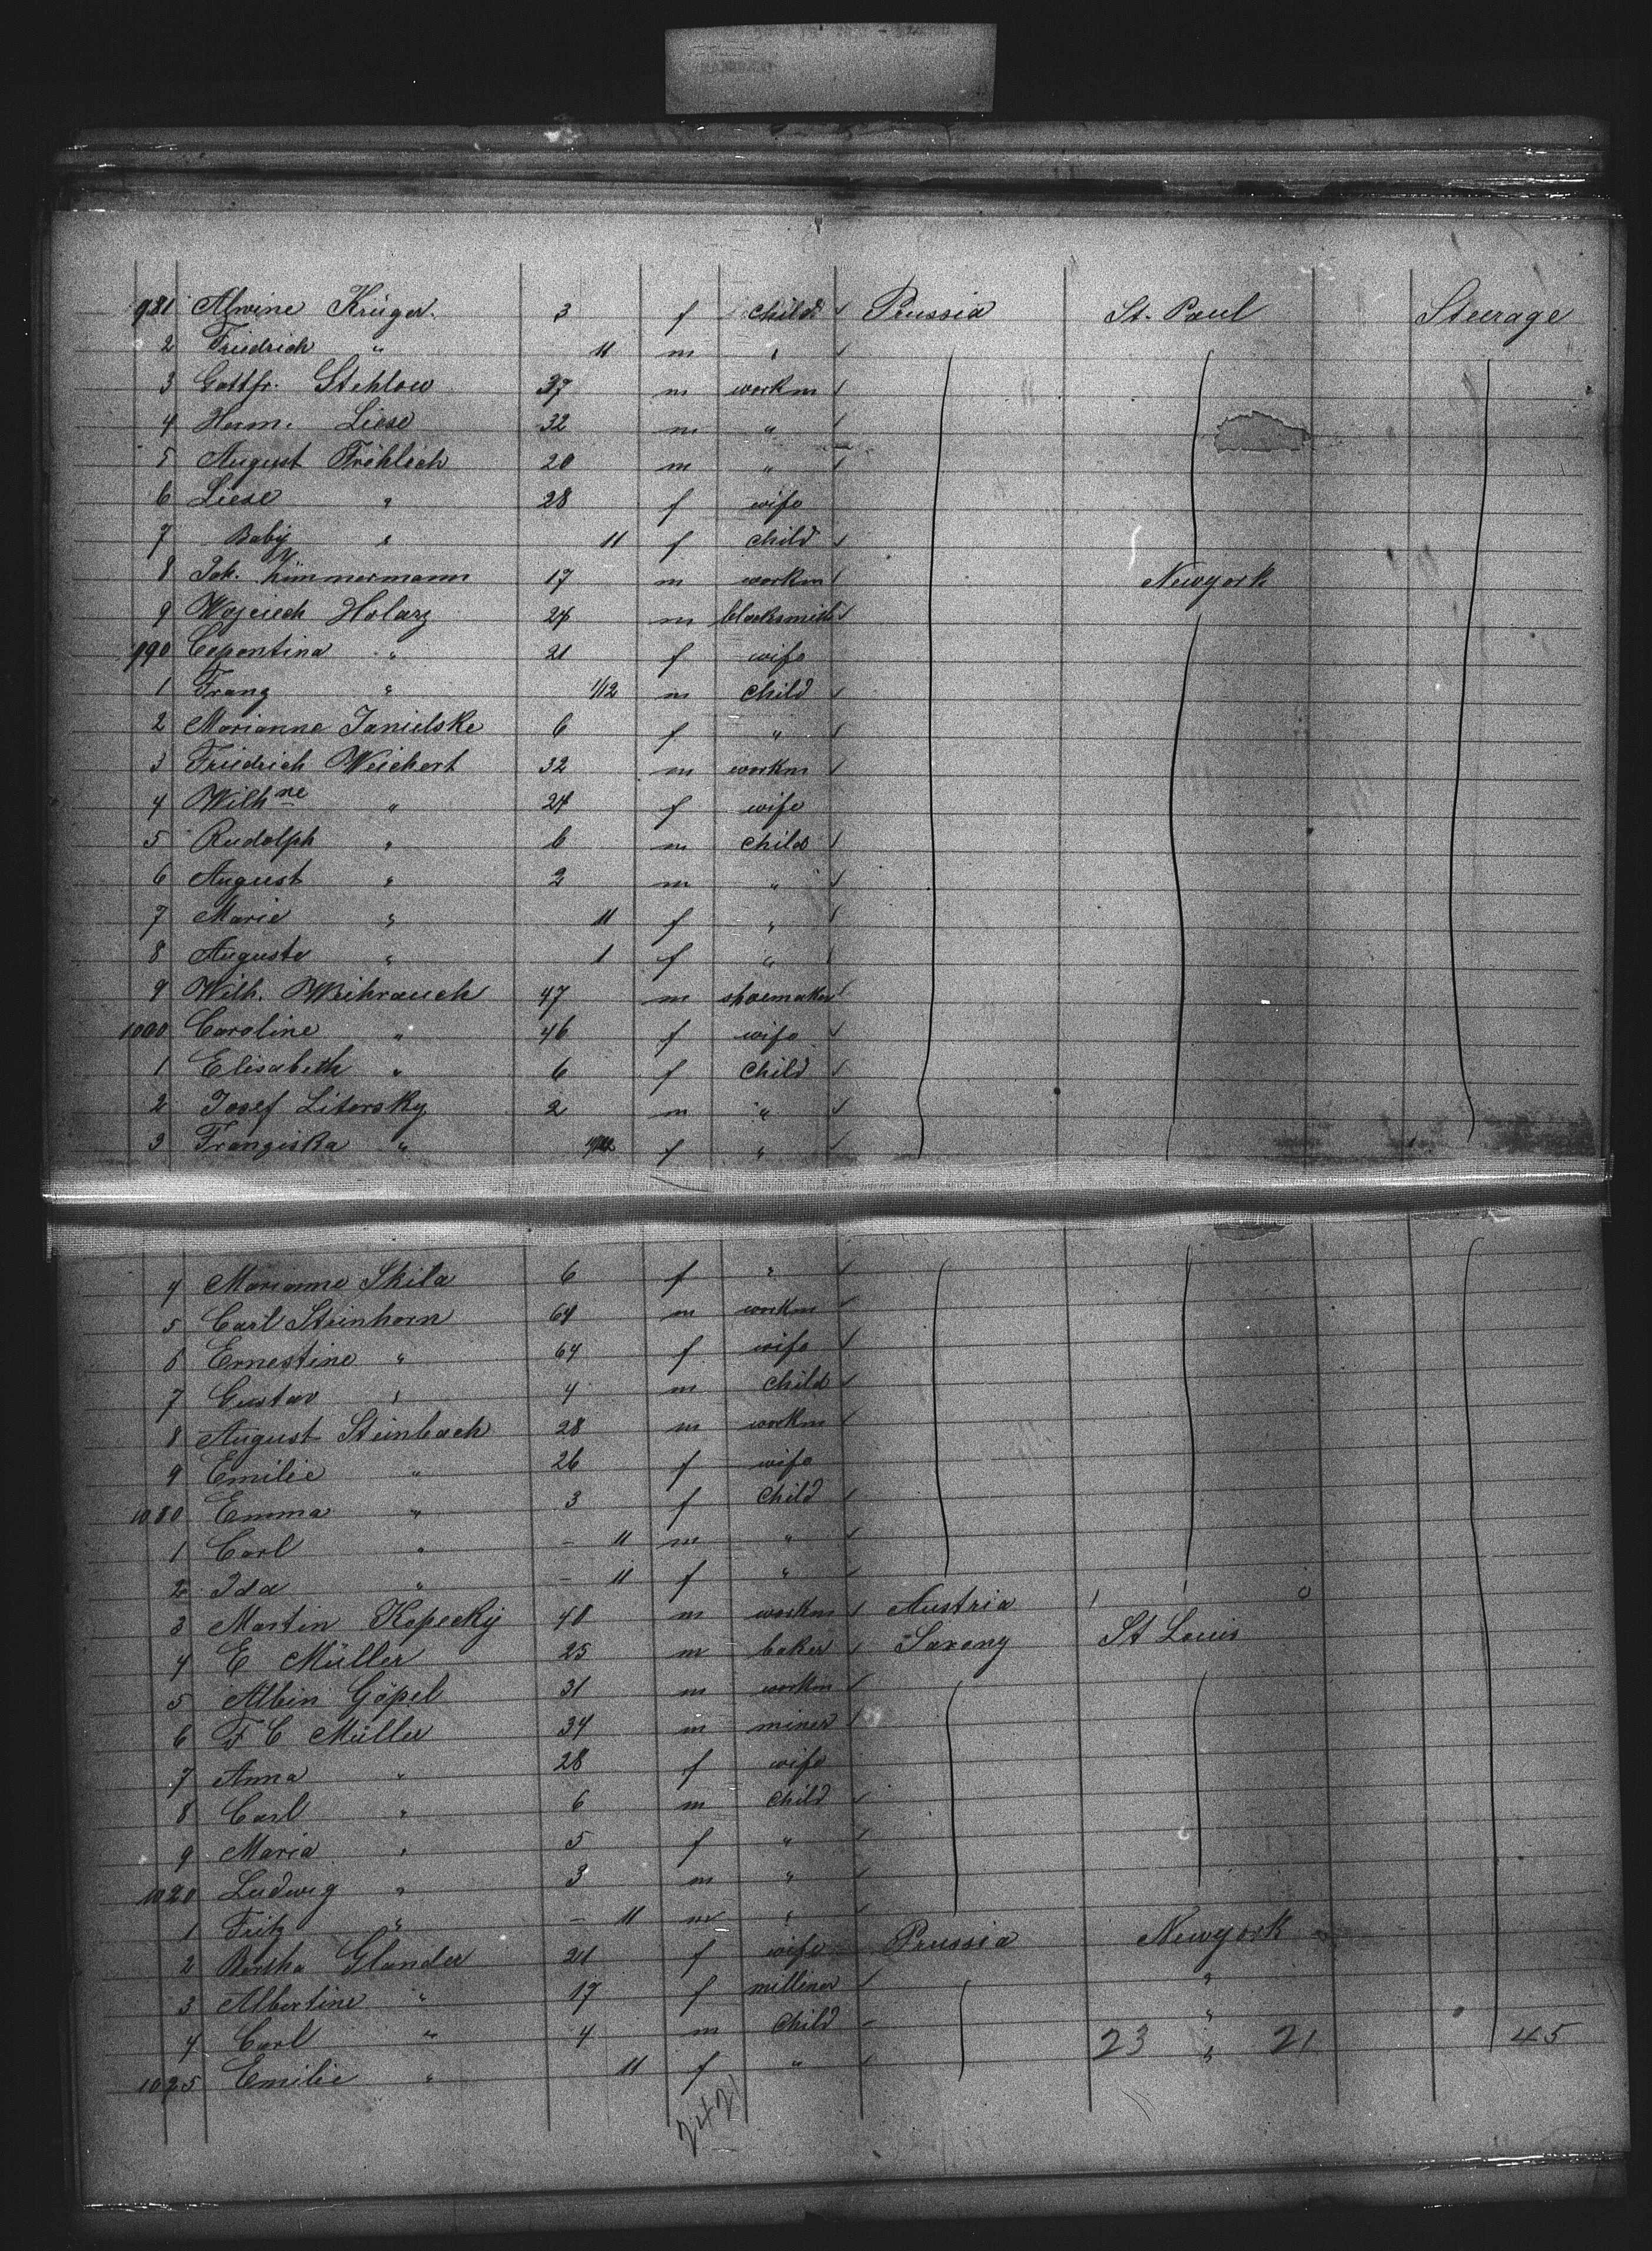 981 Alwine Krüger. 3 f child ✓ Prussia St. Paul Steerage
2 Friedrich " 11 m " ✓
3 Gottfr. Stehlow 37 m workm ✓
4 Herm. Liese 32 m " ✓
5 August Fröhlich 20 m " ✓
6 Liese " 28 f wife
7 Baby " 11 f child ✓
8 Joh. Zimmermann 17 m workm ✓ Newyork
9 Wojciech Holarz 24 m blacksmith ✓
990 Cepentina " 21 f wife
1 Franz " 1/12 m child ✓
2 Marianne Janielske 6 f " ✓
3 Friedrich Weichert 32 m workm ✓
4 Wilhne " 24 f wife
5 Rudolph " 6 m child ✓
6 August " 2 m " ✓
7 Marie " 11 f " ✓
8 Auguste " 1 f " ✓
9 Wilh. Weihrauch 47 m shoemaker ✓
1000 Caroline " 46 f wife ✓
1 Elisabeth " 6 f child ✓
2 Josef Litorsky 2 m " ✓
3 Franziska " f " ✓
4 Marianne Skila 6 f " ✓
5 Carl Steinhorn 64 m workm ✓
6 Ernestine " 64 f wife ✓
7 Gustav " 4 m child ✓
8 August Steinbach 28 m workm ✓
9 Emilie " 26 f wife
1080 Emma " 3 f child ✓
1 Carl " – 11 m " ✓
2 Ida " – 11 f " ✓
3 Martin Kopecky 40 m workm ✓ Austria
4 E Müller 25 m baker ✓ Saxony St Louis
5 Albin Göpel 31 m workm ✓
6 F C Müller 34 m miner ✓
7 Anna " 28 f wife
8 Carl " 6 m child ✓
9 Maria " 5 f " ✓
1020 Ludwig " 3 m " ✓
1 Fritz " – 11 m " ✓
2 Bertha Glander 21 f wife Prussia Newyork
3 Albertine " 17 f milliner ✓ "
4 Carl " 4 m child "
1025 Emilie " 11 f " ✓ 23 " 21 45
2421